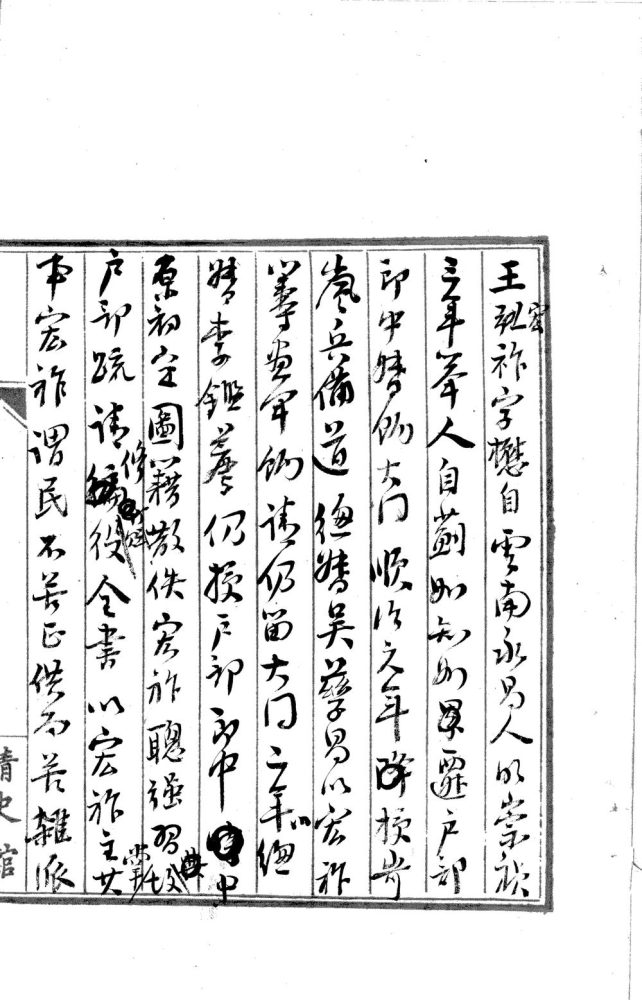 王弘祚字懋自雲南永昌人明崇禎
宏
三年舉人自薊州知州累遷户部
郎中督餉大同順治元年降授岢
嵐兵備道總督吳孳昌以宏祚
籌畫軍餉請仍留大同二年總
督李鑑薦仍授户部郎中中
原初定圖籍散佚宏祚聰强習掌故
户部疏請修編役全書以宏祚主其
事宏祚謂民不苦正供而苦雜派
清史館